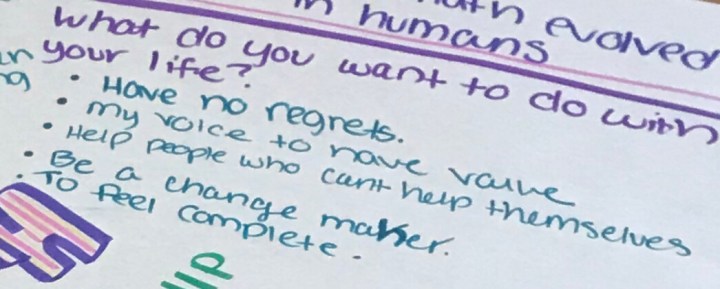 evolved
in humans
What do you want to do with
your life?
• Have no regrets.
• my voice to have value
• Help people who cant help themselves
• Be a change maker.
• To feel complete.